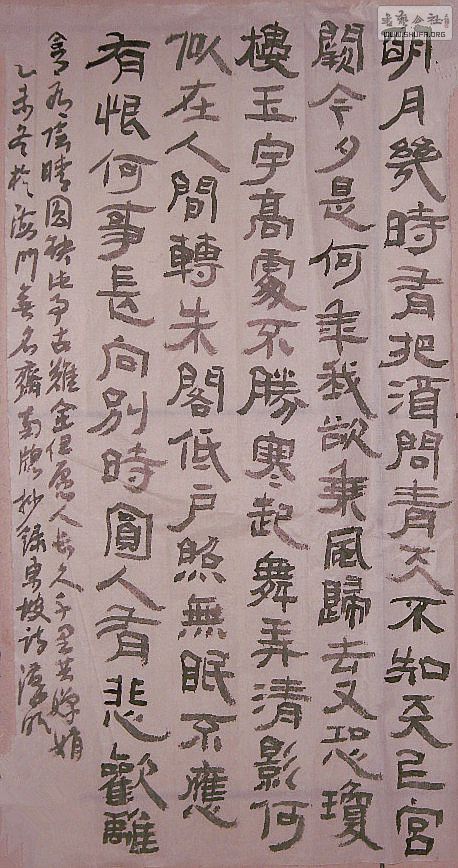 書藝公社
WWW.SHUFA.ORG
明月幾時有把酒問青天不知天上宮
闕今夕是何年我欲乘風歸去又恐瓊
樓玉宇高處不勝寒起舞弄清影何
似在人間轉朱閣低戶照無眠不應
有恨何事長向別時圓人有悲歡離
合月有陰晴圓缺此事古難全但愿人長久千里共嬋娟
乙未冬於海門無名齋南牕抄錄東坡詩